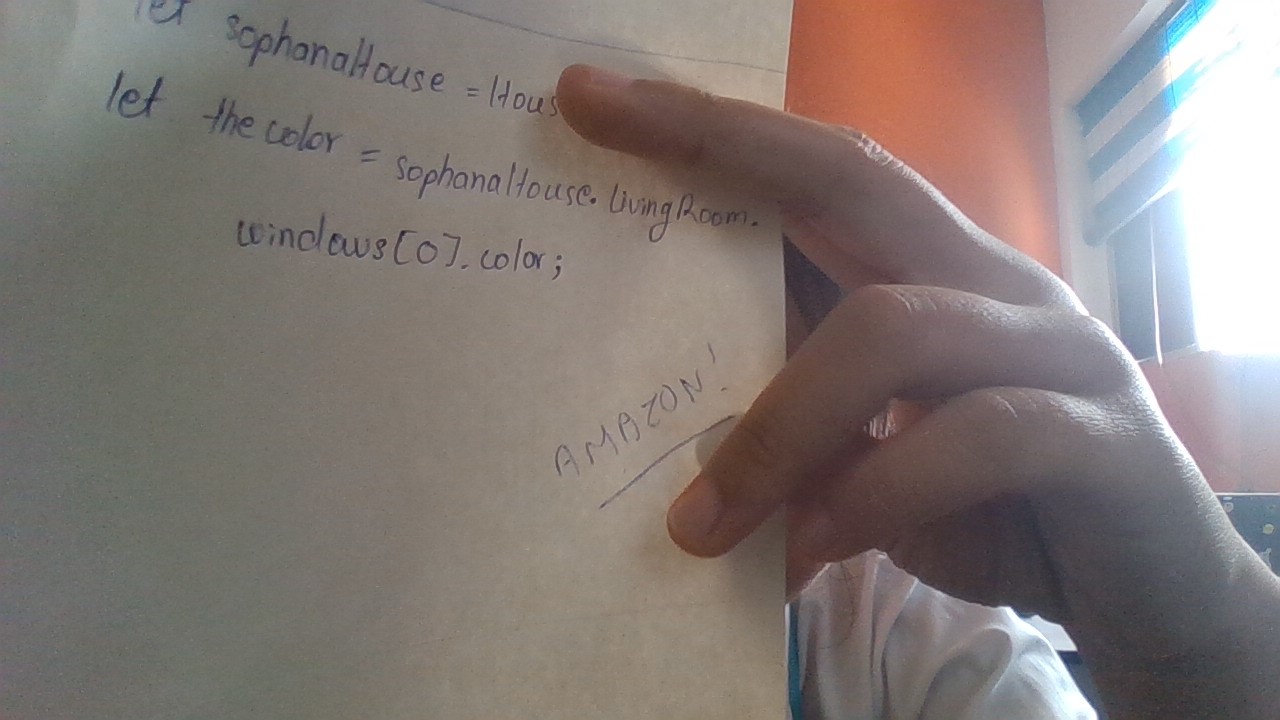 let sophanaHouse = Hous
let the color = sophanaHouse. livingRoom.
windows[0]. color;
AMAZON!